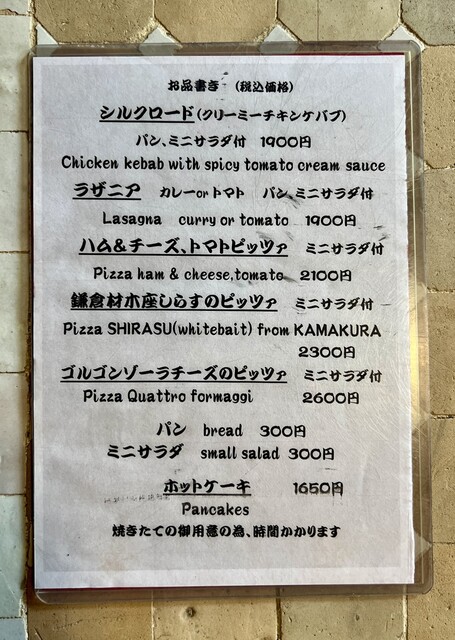 お品書き (税込価格)
シルクロード(クリーミーチキンケバブ)
パン、ミニサラダ付 1900円
Chicken kebab with spicy tomato cream sauce
ラザニア カレーorトマト パン、ミニサラダ付
Lasagna curry or tomato 1900円
ハム&チーズ、トマトピッツァ ミニサラダ付
Pizza ham & cheese,tomato 2100円
鎌倉材木座しらすのピッツァ ミニサラダ付
Pizza SHIRASU(whitebait) from KAMAKURA
2300円
ゴルゴンゾーラチーズのピッツァ ミニサラダ付
Pizza Quattro formaggi 2600円
パン bread 300円
ミニサラダ small salad 300円
ホットケーキ 1650円
Pancakes
焼きたての御用意の為、時間かかります